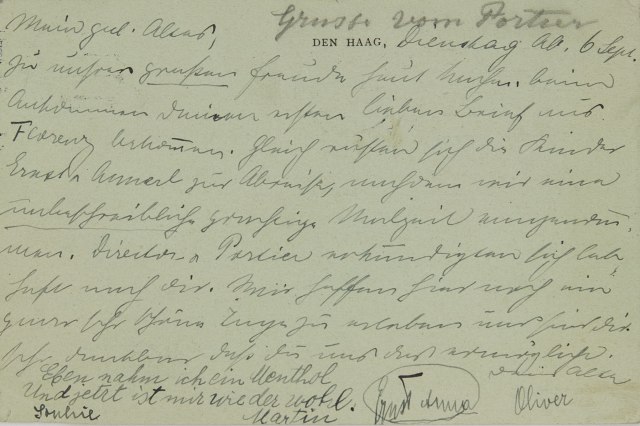 Grüsse vom Portier
Mein gel. Alex,
DEN HAAG, Dienstag Ab. 6 Sept.
Zu unsrer grossen Freude heut Nachm. beim
Ankommen deinen ersten lieben Brief aus
Florenz bekommen. Gleich rüsten sich die Kinder
Ernst u Annerl zur Abreise, nachdem wir eine
unbeschreiblich günstige Malzeit eingenom-
men. Director u Portier erkundigten sich leb-
haft nach dir. Wir hoffen hier noch ein
paar sehr schöne Tage zu erleben und sind dir
sehr dankbar daß du uns das ermöglicht.
Eben nahm ich ein Menthol
Und jetzt ist mir wieder wohl.
Martin
Sophie
Ernst Anna
Oliver